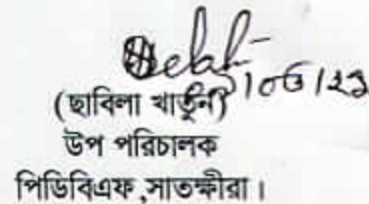 (ছাবিলা খাতুন)
উপ পরিচালক
পিডিবিএফ,সাতক্ষীরা।